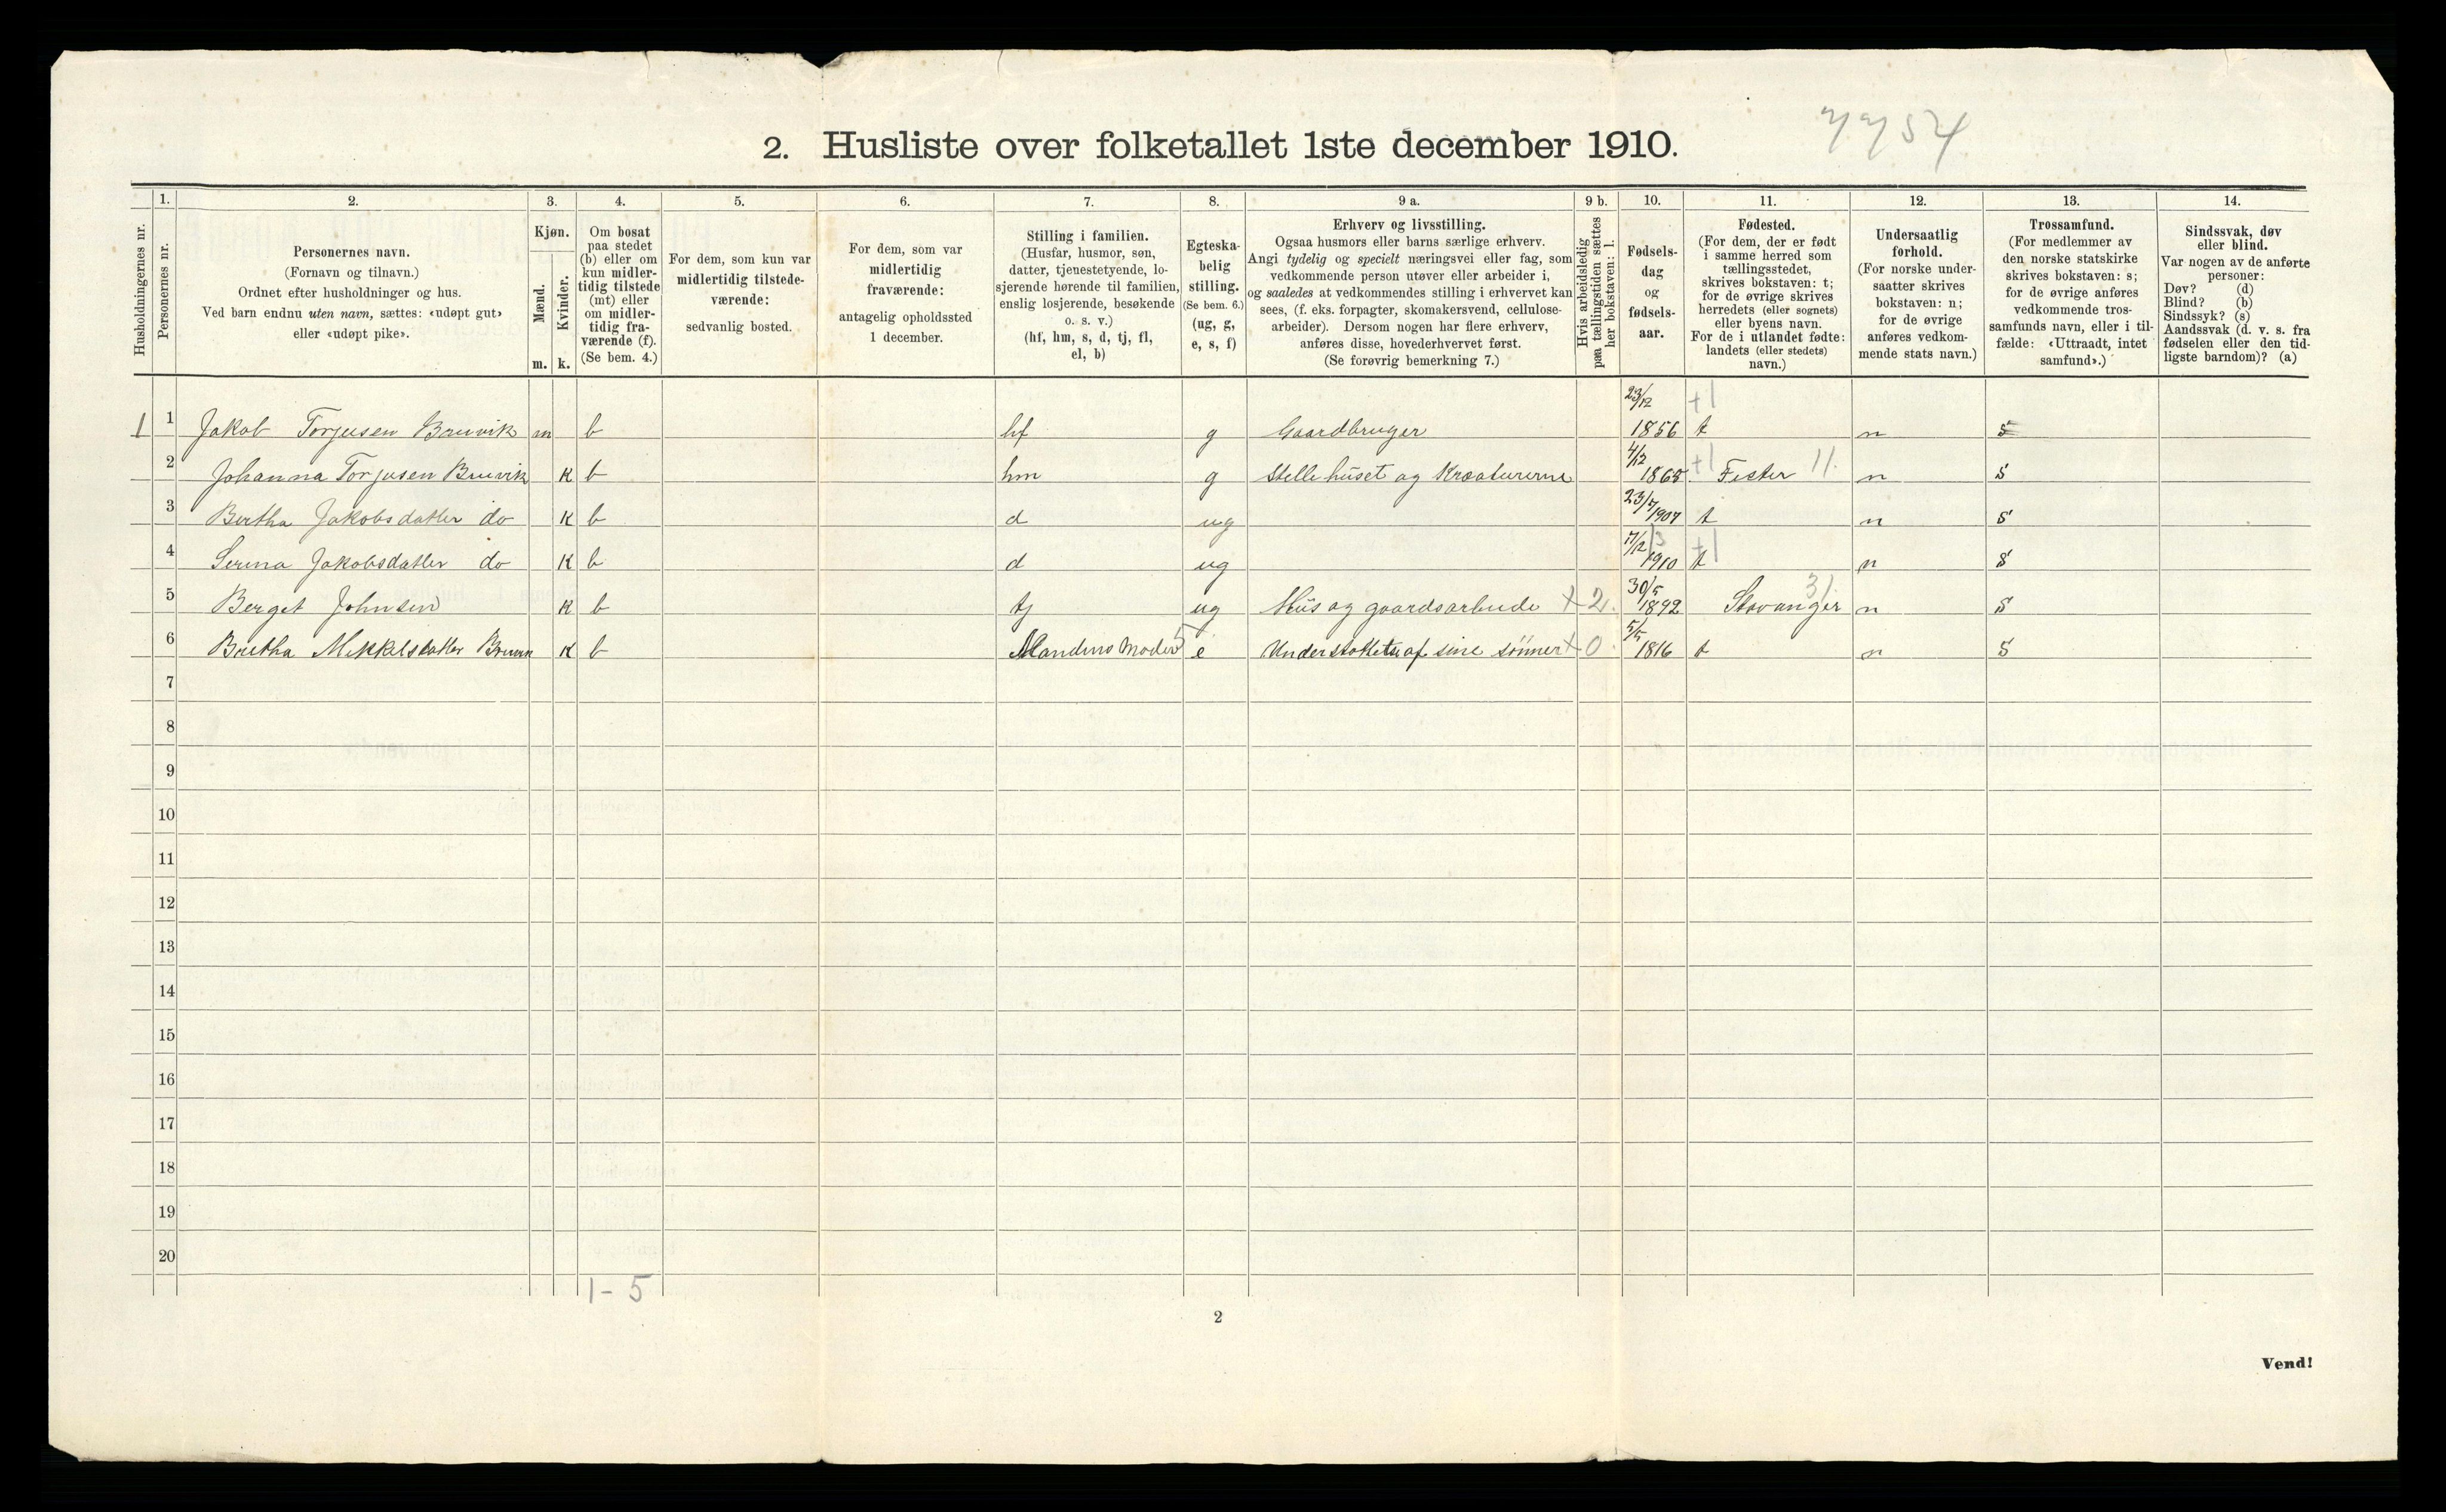 7754
2. Husliste over folketallet 1ste december 1910.
Husholdningernes nr.
1.
Personernes nr.
2.
Personernes navn.
(Fornavn og tilnavn.)
Ordnet efter husholdninger og hus.
Ved barn endnu uten navn, sættes: «udøpt gut»
eller «udøpt pike».
3.
Kjøn.
Mænd.
Kvinder.
m. k.
4.
Om bosat
paa stedet
(b) eller om
kun midler-
tidig tilstede
(mt) eller
om midler-
tidig fra-
værende (f).
(Se bem. 4.)
5.
For dem, som kun var
midlertidig tilstede-
værende:
sedvanlig bosted.
6.
For dem, som var
midlertidig
fraværende:
antagelig opholdssted
1 december.
7.
Stilling i familien.
(Husfar, husmor, søn,
datter, tjenestetyende, lo-
sjerende hørende til familien,
enslig losjerende, besøkende
o. s. v.)
(hf, hm, s, d, tj, fl,
el, b)
8.
Egteska-
belig
stilling.
(Se bem. 6.)
(ug, g,
e, s, f)
9 a.
Erhverv og livsstilling.
Ogsaa husmors eller barns særlige erhverv.
Angi tydelig og specielt næringsvei eller fag, som
vedkommende person utøver eller arbeider i,
og saaledes at vedkommendes stilling i erhvervet kan
sees, (f. eks. forpagter, skomakersvend, cellulose-
arbeider). Dersom nogen har flere erhverv,
anføres disse, hovederhvervet først.
(Se forøvrig bemerkning 7.)
9 b.
Hvis arbeidsledig
paa tællingstiden sættes
her bokstaven: l.
10.
Fødsels-
dag
og
fødsels-
aar.
11.
Fødested.
(For dem, der er født
i samme herred som
tællingsstedet,
skrives bokstaven: t;
for de øvrige skrives
herredets (eller sognets)
eller byens navn.
For de i utlandet fødte:
landets (eller stedets)
navn.)
12.
Undersaatlig
forhold.
(For norske under-
saatter skrives
bokstaven: n;
for de øvrige
anføres vedkom-
mende stats navn.)
13.
Trossamfund.
(For medlemmer av
den norske statskirke
skrives bokstaven: s;
for de øvrige anføres
vedkommende tros-
samfunds navn, eller i til-
fælde: «Uttraadt, intet
samfund».)
14.
Sindssvak, døv
eller blind.
Var nogen av de anførte
personer:
Døv? (d)
Blind? (b)
Sindssyk? (s)
Aandssvak (d. v. s. fra
fødselen eller den tid-
ligste barndom)? (a)
1 1 Jakob Torjusen Bruvik m b hf g Gaardbruger 23/12 1856 +1 t n s
2 Johanna Torjusen Bruvik K b hm g Stelle huset og Kreaturerne 4/12 1865 +1 Fister 11. n s
3 Bertha Jakobsdatter do K b d ug 23/7 1907 t n s
4 Serina Jakobsdatter do K b d ug 7/12 1910 +1 t n s
5 Berget Johnsen K b tj ug Hus og gaardsarbeide + 2. 30/5 1892 Stavanger 31. n s
6 Bertha Mikkelsdatter K b Mandens Moder 5 e Understøttet af sine sønner + 0. 5/5 1816 t n s
7
8
9
10
11
12
13
14
15
16
17
18
19
20
1 - 5
2
Vend!